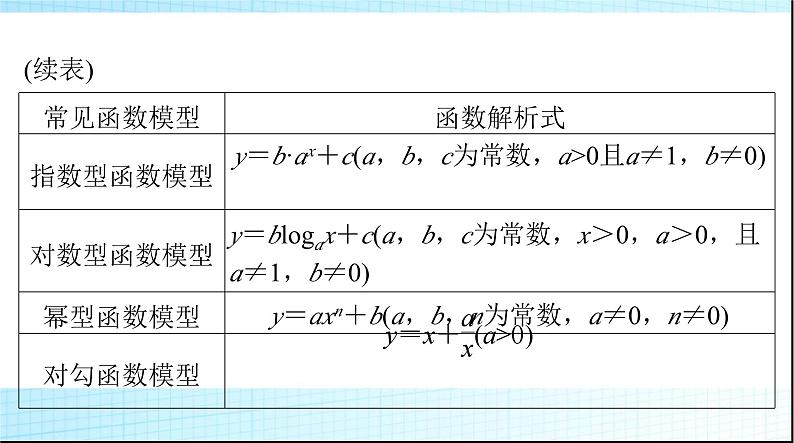 (续表)
常见函数模型 函数解析式
指数型函数模型 y＝b·aˣ＋c(a，b，c为常数，a>0且a≠1，b≠0)
对数型函数模型 y＝blogₐx＋c(a，b，c为常数，x＞0，a＞0，且
a≠1，b≠0)
幂型函数模型 y＝axⁿ＋b(a，b，n为常数，a≠0，n≠0)
对勾函数模型 y＝x＋a/x(a>0)